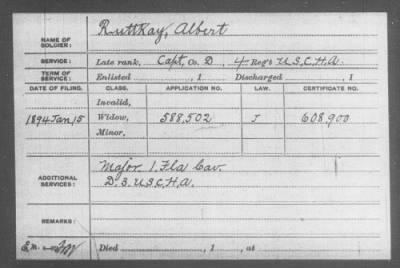 NAME OF SOLDIER: Ruttkay, Albert
SERVICE: Late rank, Capt, Co. D, 4 Reg't U.S.C.H.A.
TERM OF SERVICE: Enlisted , 1 Discharged , 1
DATE OF FILING. CLASS. APPLICATION NO. LAW. CERTIFICATE NO.
Invalid,
1894 Jan 15 Widow, 588,502 J 608,900
Minor,
ADDITIONAL SERVICES: Major 1. Fla Cav.
D. 3. U.S.C.H.A.
REMARKS:
Died , 1 , at